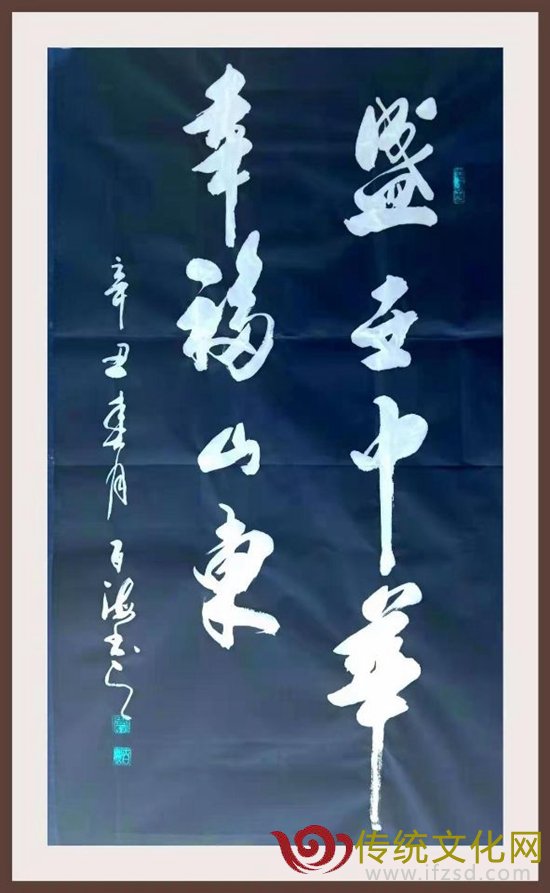 盛世中華
幸福山東
辛丑春月百海書
传统文化网
www.ifzsd.com